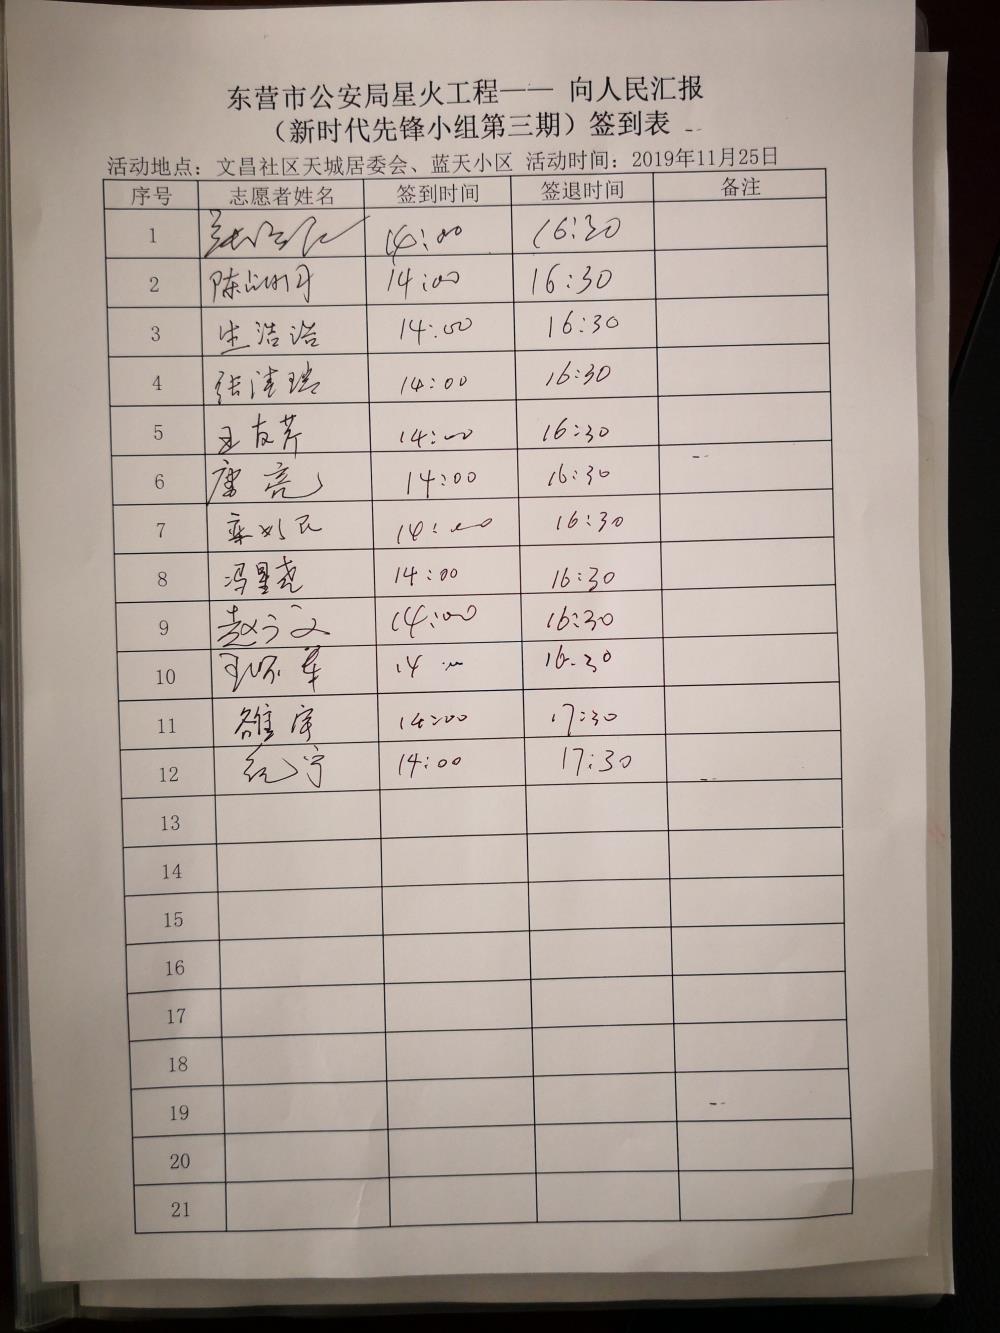 东营市公安局星火工程—— 向人民汇报
（新时代先锋小组第三期）签到表
活动地点：文昌社区天城居委会、蓝天小区 活动时间：2019年11月25日
序号 志愿者姓名 签到时间 签退时间 备注
1 14:00 16:30
2 陈 14:00 16:30
3 生浩浩 14:00 16:30
4 张清瑞 14:00 16:30
5 王友芹 14:00 16:30
6 唐亮 14:00 16:30
7 14:00 16:30
8 冯星尧 14:00 16:30
9 赵 文 14:00 16:30
10 王环军 14:00 16:30
11 雒宇 14:00 17:30
12 纪宁 14:00 17:30
13
14
15
16
17
18
19
20
21